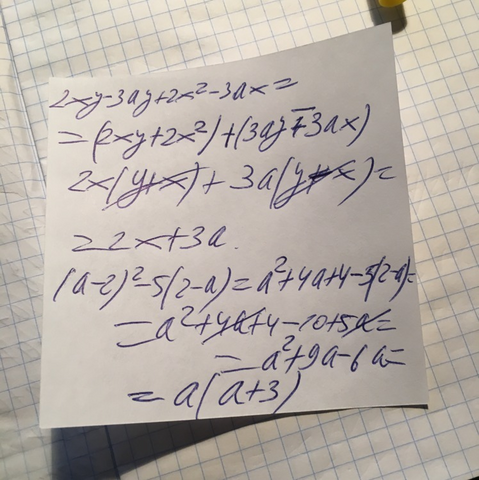 2xy-3ay+2x²-3ax=
=(2xy+2x²)+(3ay-3ax)
2x(y+x)+3a(y+x)=
=2x+3a.
(a-2)²-5(2-a)=a²+4a+4-5(2-a)=
=a²+4a+4-10+5a=
=a²+9a-6a=
=a(a+3)